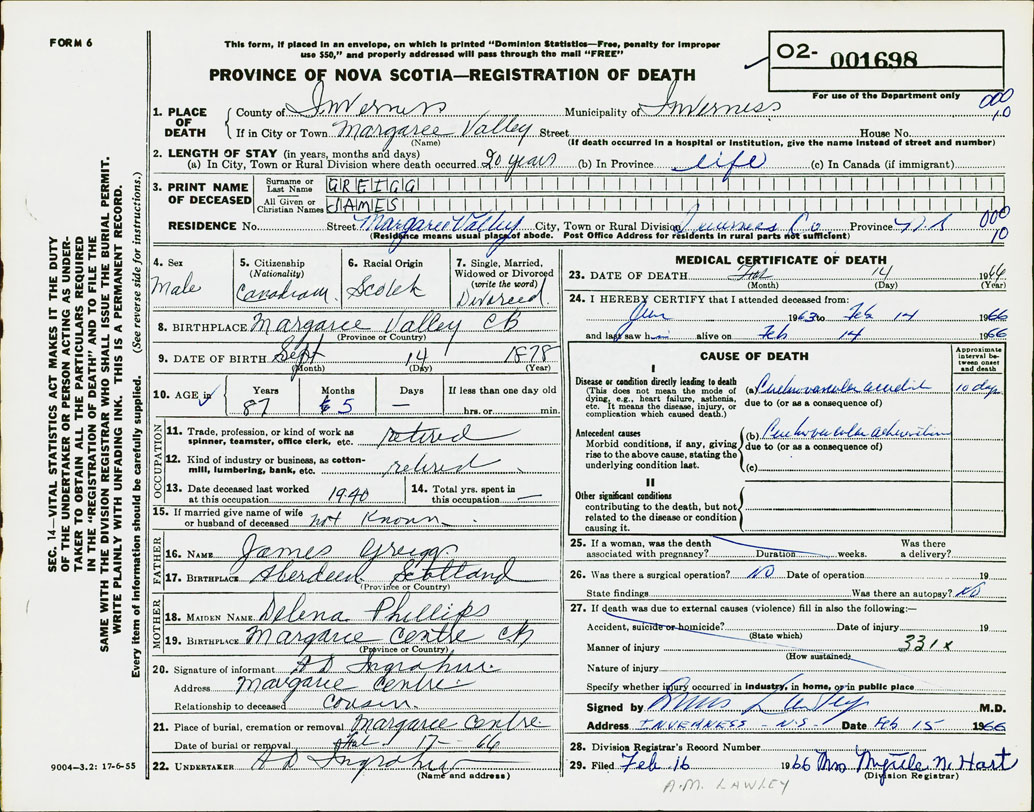 FORM 6
This form, if placed in an envelope, on which is printed "Dominion Statistics—Free, penalty for improper
use $50," and properly addressed will pass through the mail "FREE"
PROVINCE OF NOVA SCOTIA—REGISTRATION OF DEATH
O2- 001698
For use of the Department only
000
10
1. PLACE OF DEATH
County of Inverness Municipality of Inverness
If in City or Town Margaree Valley Street House No.
(Name) (If death occurred in a hospital or institution, give the name instead of street and number)
2. LENGTH OF STAY (in years, months and days)
(a) In City, Town or Rural Division where death occurred 20 years (b) In Province life (c) In Canada (if immigrant)
3. PRINT NAME OF DECEASED
Surname or Last Name GREIGG
All Given or Christian Names JAMES
RESIDENCE No. Street Margaree Valley City, Town or Rural Division Inverness Co Province N.S
000
10
(Residence means usual place of abode. Post Office Address for residents in rural parts not sufficient)
4. Sex
Male
5. Citizenship
(Nationality)
Canadian
6. Racial Origin
Scotch
7. Single, Married, Widowed or Divorced
(write the word)
Divorced.
8. BIRTHPLACE Margaree Valley CB
(Province or Country)
9. DATE OF BIRTH Sept 14 1878
(Month) (Day) (Year)
10. AGE in
Years Months Days If less than one day old
87 5 — hrs. or min.
OCCUPATION
11. Trade, profession, or kind of work as spinner, teamster, office clerk, etc. retired
12. Kind of industry or business, as cotton-mill, lumbering, bank, etc. retired
13. Date deceased last worked at this occupation 1940
14. Total yrs. spent in this occupation —
15. If married give name of wife or husband of deceased not Known
FATHER
16. NAME James Greigg
17. BIRTHPLACE Aberdeen Scotland
(Province or Country)
MOTHER
18. MAIDEN NAME Delena Phillips
19. BIRTHPLACE Margaree Centre CB
(Province or Country)
20. Signature of informant A D Ingraham
Address Margaree Centre
Relationship to deceased Cousin
21. Place of burial, cremation or removal Margaree Centre
Date of burial or removal Feb 17 - 66
22. UNDERTAKER A D Ingraham
(Name and address)
MEDICAL CERTIFICATE OF DEATH
23. DATE OF DEATH Feb 14 1966
(Month) (Day) (Year)
24. I HEREBY CERTIFY that I attended deceased from:
1963 to Feb 14 1966
and last saw him alive on Feb 14 1966
CAUSE OF DEATH
Approximate interval between onset and death
I
Disease or condition directly leading to death
(This does not mean the mode of dying, e.g., heart failure, asthenia, etc. It means the disease, injury, or complication which caused death.)
(a) Cerebrovascular accident 10 days
due to (or as a consequence of)
Antecedent causes
Morbid conditions, if any, giving rise to the above cause, stating the underlying condition last.
(b) Cerebrovascular
due to (or as a consequence of)
(c)
II
Other significant conditions
contributing to the death, but not related to the disease or condition causing it.
25. If a woman, was the death associated with pregnancy? Duration weeks. Was there a delivery?
26. Was there a surgical operation? NO Date of operation 19
State findings Was there an autopsy? NO
27. If death was due to external causes (violence) fill in also the following:—
Accident, suicide or homicide? Date of injury 19
(State which)
Manner of injury 331x
(How sustained)
Nature of injury
Specify whether injury occurred in industry, in home, or in public place
Signed by M.D.
Address INVERNESS - N.S. Date Feb 15 1966
28. Division Registrar's Record Number
29. Filed Feb 16 1966 Mrs Myrtle N. Hart
(Division Registrar)
A.M. LAWLEY
9004—3.2: 17-6-55
SEC. 14—VITAL STATISTICS ACT MAKES IT THE DUTY
OF THE UNDERTAKER OR PERSON ACTING AS UNDER-
TAKER TO OBTAIN ALL THE PARTICULARS REQUIRED
IN THE "REGISTRATION OF DEATH" AND TO FILE THE
SAME WITH THE DIVISION REGISTRAR WHO SHALL ISSUE THE BURIAL PERMIT.
WRITE PLAINLY WITH UNFADING INK. THIS IS A PERMANENT RECORD.
Every item of information should be carefully supplied. (See reverse side for instructions.)